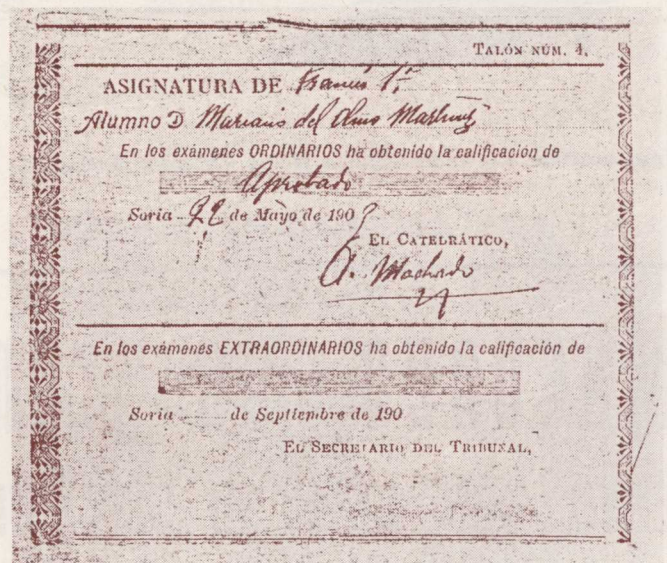 TALÓN NÚM. 4.
ASIGNATURA DE Francés 1º
Alumno D Mariano del Olmo Martínez
En los exámenes ORDINARIOS ha obtenido la calificación de
Aprobado
Soria 22 de Mayo de 190
EL CATEDRÁTICO,
A. Machado
En los exámenes EXTRAORDINARIOS ha obtenido la calificación de
Soria de Septiembre de 190
EL SECRETARIO DEL TRIBUNAL,